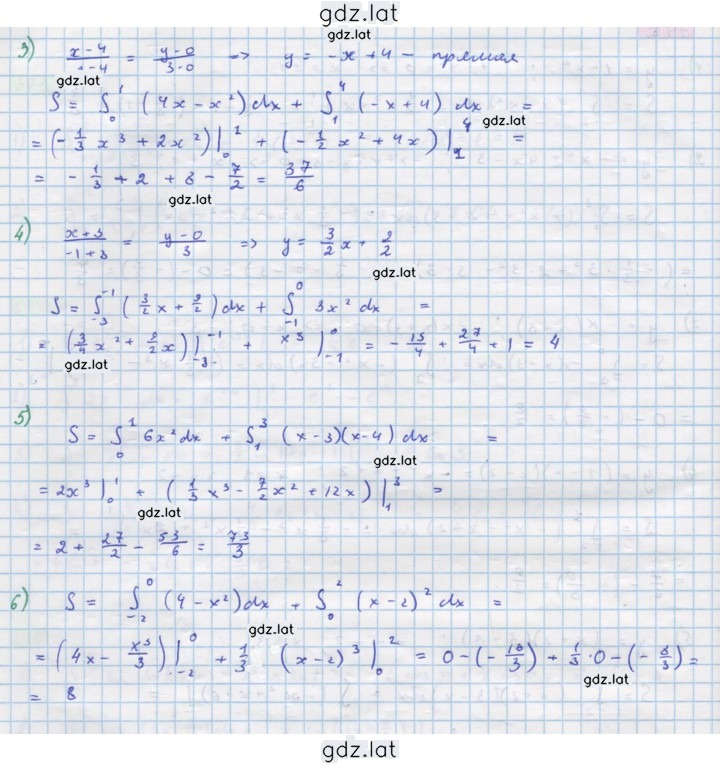 gdz.lat
3) x-4/1-4 = y-0/3-0 => y = -x + 4 - прямая
gdz.lat
S = ∫₀¹ (4x - x²) dx + ∫₁⁴ (-x + 4) dx =
gdz.lat
= (-1/3 x³ + 2x²)|₀¹ + (-1/2 x² + 4x)|₁⁴ =
= -1/3 + 2 + 8 - 7/2 = 37/6
gdz.lat
4) x+3/-1+3 = y-0/3 => y = 3/2 x + 9/2
gdz.lat
S = ∫₋₃⁻¹ (3/2 x + 9/2) dx + ∫₋₁⁰ 3x² dx =
= (3/4 x² + 9/2 x)|₋₃⁻¹ + x³|₋₁⁰ = -15/4 + 27/4 + 1 = 4
gdz.lat
5) S = ∫₀¹ 6x² dx + ∫₁³ (x-3)(x-4) dx =
gdz.lat
= 2x³|₀¹ + (1/3 x³ - 7/2 x² + 12x)|₁³ =
gdz.lat
= 2 + 27/2 - 53/6 = 73/3
6) S = ∫₋₂⁰ (4 - x²) dx + ∫₀² (x-2)² dx =
gdz.lat
= (4x - x³/3)|₋₂⁰ + 1/3 (x-2)³|₀² = 0 - (-16/3) + 1/3 · 0 - (-8/3) =
gdz.lat
= 8
gdz.lat